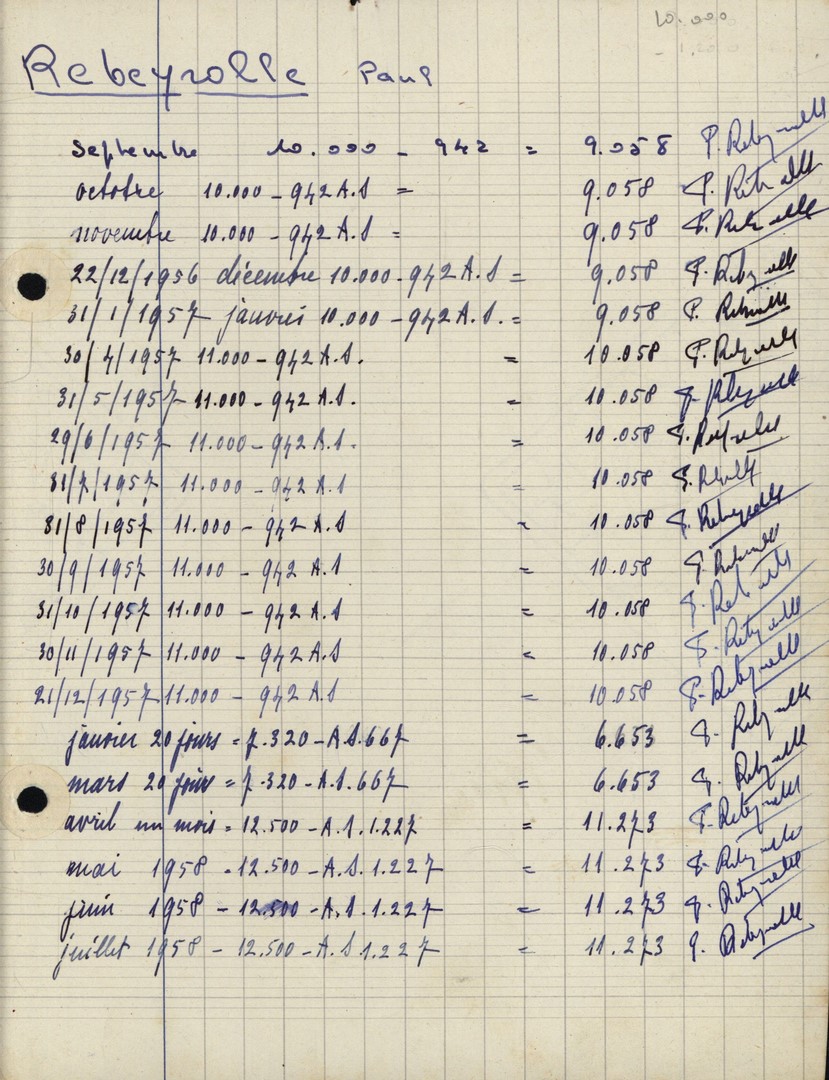 10.000
Rebeyrolle Paul
Septembre 10.000 - 942 = 9.058 P. Rebeyrolle
octobre 10.000 - 942 A.S = 9.058 P. Rebeyrolle
novembre 10.000 - 942 A.S = 9.058 P. Rebeyrolle
22/12/1956 décembre 10.000 - 942 A.S = 9.058 P. Rebeyrolle
31/1/1957 janvier 10.000 - 942 A.S. = 9.058 P. Rebeyrolle
30/4/1957 11.000 - 942 A.S. = 10.058 P. Rebeyrolle
31/5/1957 11.000 - 942 A.S. = 10.058 P. Rebeyrolle
29/6/1957 11.000 - 942 A.S. = 10.058 P. Rebeyrolle
31/7/1957 11.000 - 942 A.S = 10.058 P. Rebeyrolle
31/8/1957 11.000 - 942 A.S = 10.058 P. Rebeyrolle
30/9/1957 11.000 - 942 A.S = 10.058 P. Rebeyrolle
31/10/1957 11.000 - 942 A.S = 10.058 P. Rebeyrolle
30/11/1957 11.000 - 942 A.S = 10.058 P. Rebeyrolle
21/12/1957 11.000 - 942 A.S = 10.058 P. Rebeyrolle
janvier 20 jours = 7.320 - A.S. 667 = 6.653 P. Rebeyrolle
mars 20 jours = 7.320 - A.S. 667 = 6.653 P. Rebeyrolle
avril un mois = 12.500 - A.S. 1.227 = 11.273 P. Rebeyrolle
mai 1958 - 12.500 - A.S. 1.227 = 11.273 P. Rebeyrolle
juin 1958 - 12.500 - A.S. 1.227 = 11.273 P. Rebeyrolle
juillet 1958 - 12.500 - A.S 1.227 = 11.273 P. Rebeyrolle